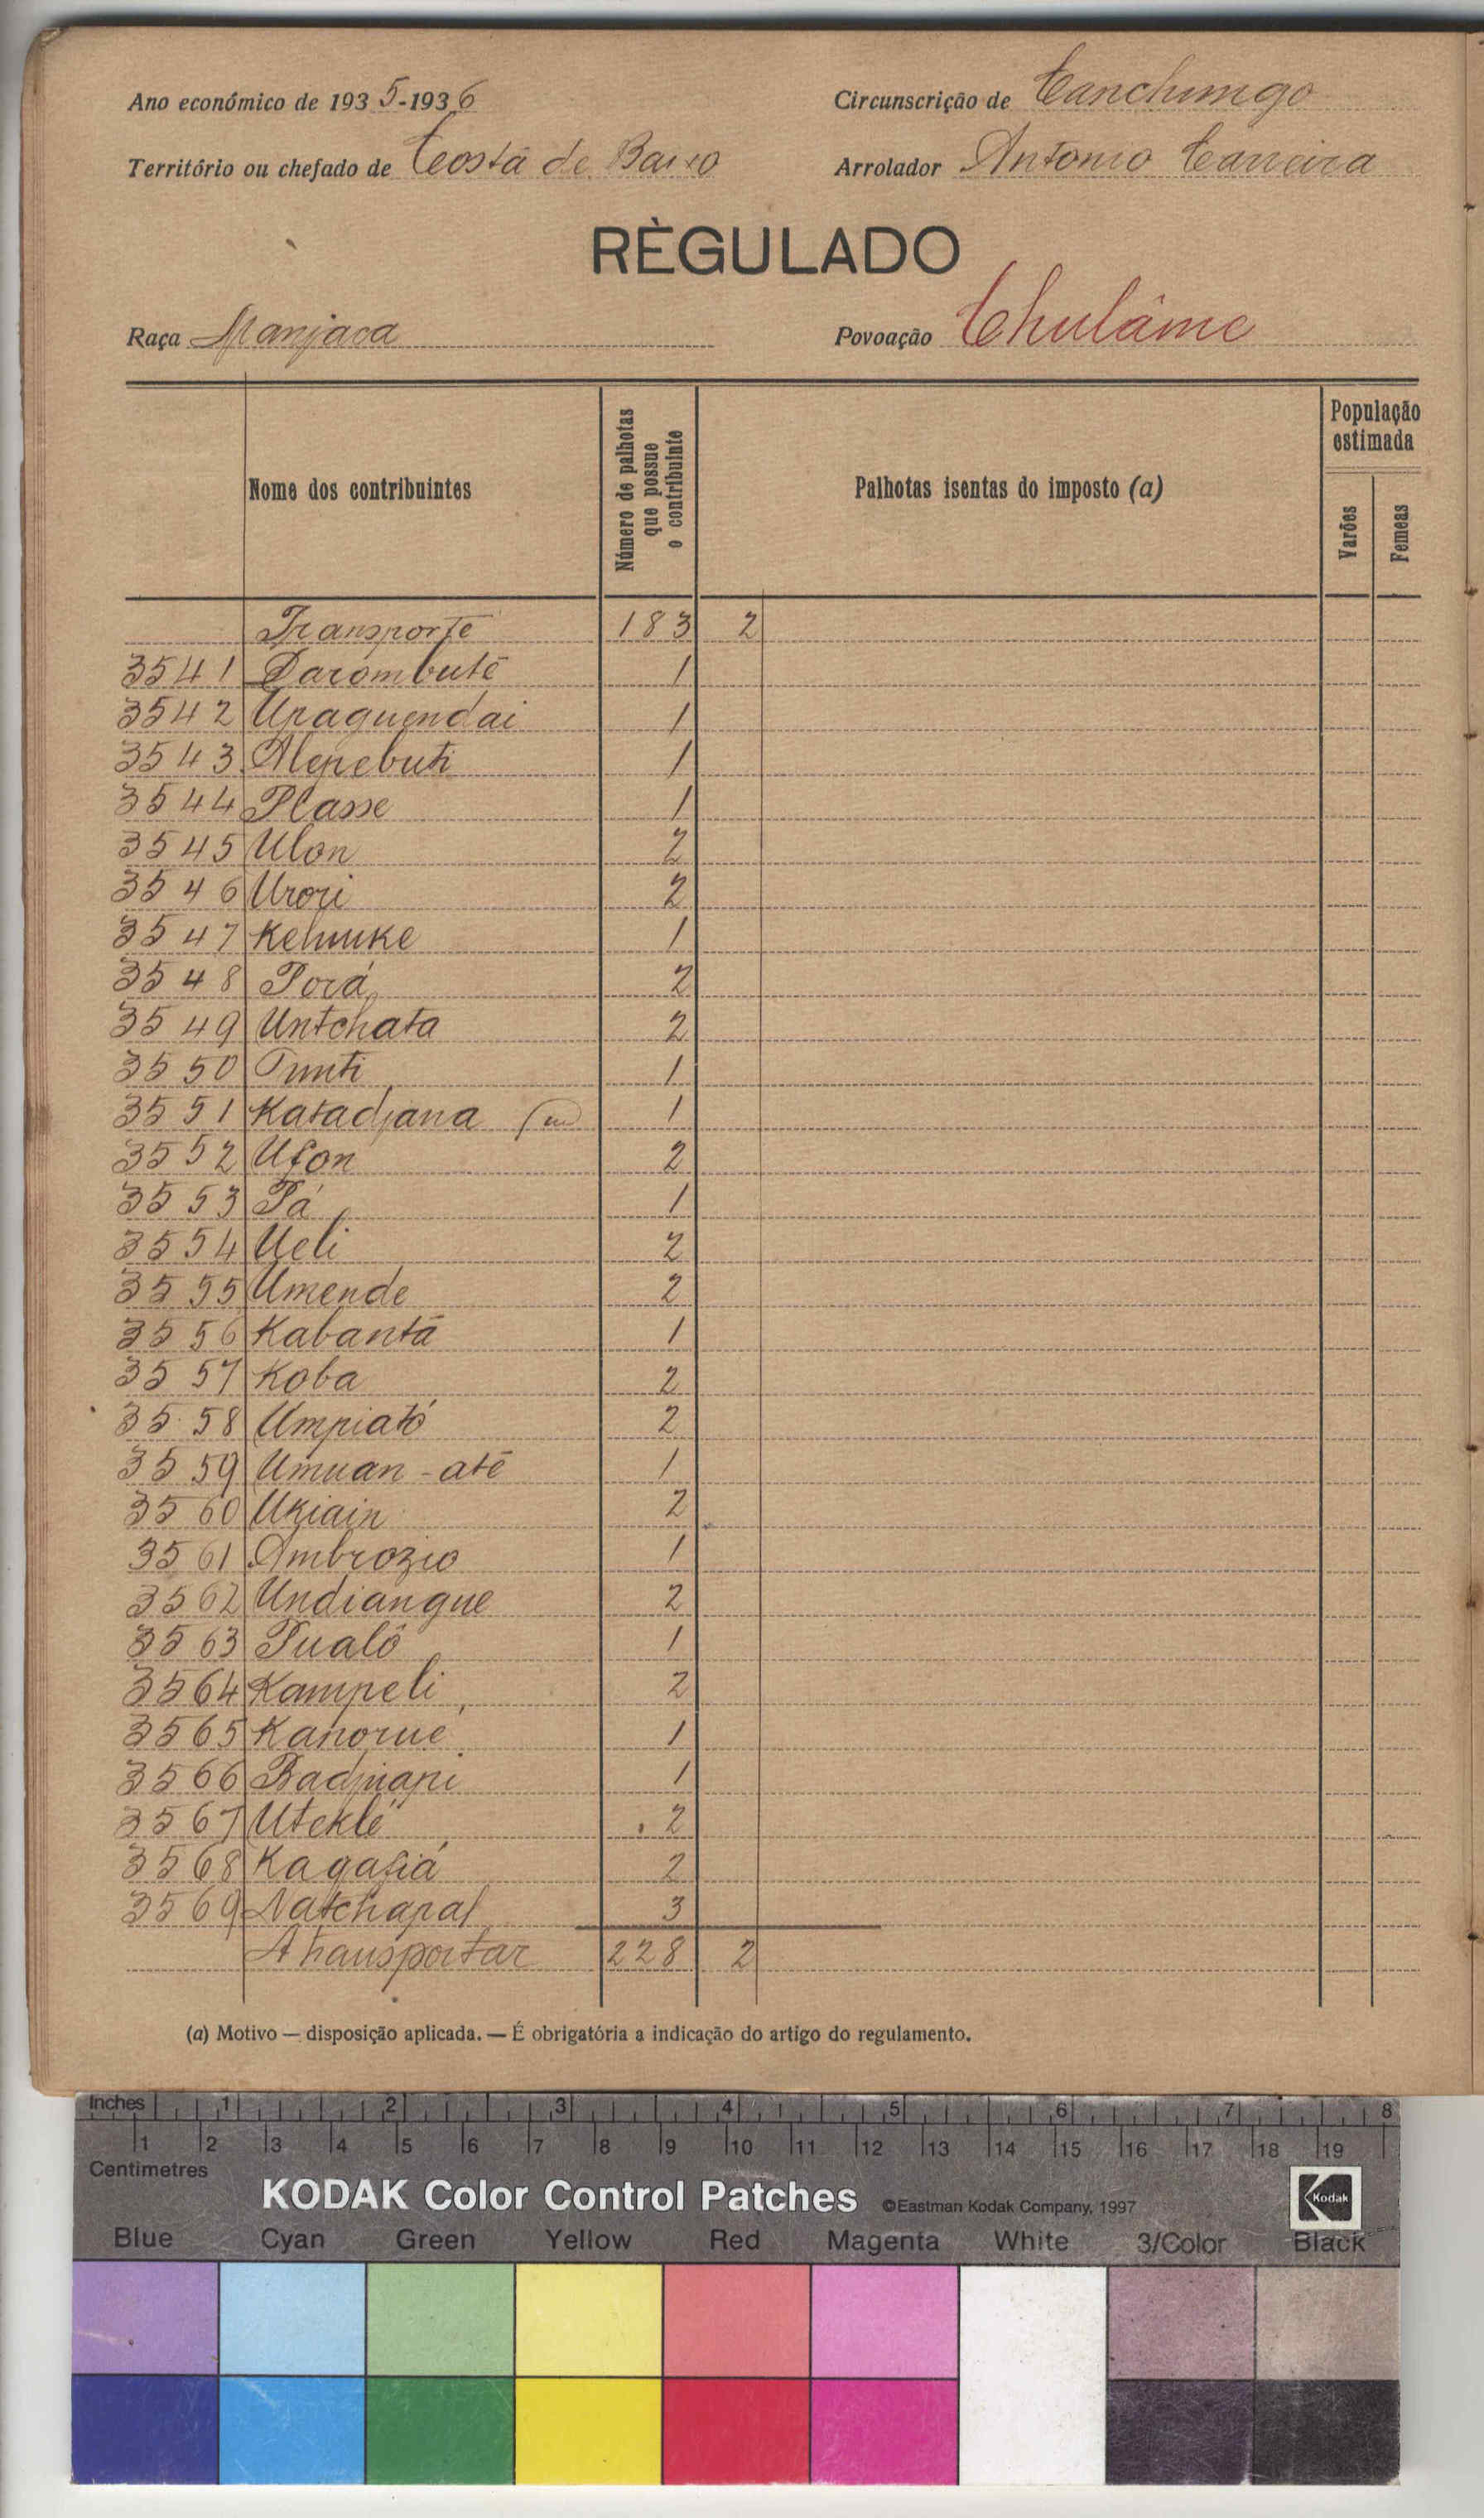 Ano económico de 1935-1936 Circunscrição de Canchungo
Território ou chefado de Costa de Baixo Arrolador Antonio Carreira
RÈGULADO
Raça Manjaca Povoação Chulâme
Nome dos contribuintes Número de palhotas que possue o contribuinte Palhotas isentas do imposto (a) População estimada Varões Femeas
Transporte 183 2
3541 Darombutê 1
3542 Upaguendai 1
3543 Alepebuti 1
3544 Plasse 1
3545 Ulon 2
3546 Urori 2
3547 1
3548 Porá 2
3549 Untchata 2
3550 1
3551 Katadjana 1
3552 Ufon 2
3553 Pá 1
3554 Ueli 2
3555 Umende 2
3556 Kabantâ 1
3557 Koba 2
3558 Umpiató 2
3559 Umuan-atê 1
3560 Ukiain 2
3561 Ambrozio 1
3562 Undiangue 2
3563 Pualô 1
3564 Kampeli 2
3565 Kanorué 1
3566 Badjiapi 1
3567 Uteklé 2
3568 Kagafiá 2
3569 Natchapal 3
A transportar 228 2
(a) Motivo — disposição aplicada. — É obrigatória a indicação do artigo do regulamento.
Inches 1 2 3 4 5 6 7 8
1 2 3 4 5 6 7 8 9 10 11 12 13 14 15 16 17 18 19
Centimetres
KODAK Color Control Patches ©Eastman Kodak Company, 1997 Kodak
Blue Cyan Green Yellow Red Magenta White 3/Color Black